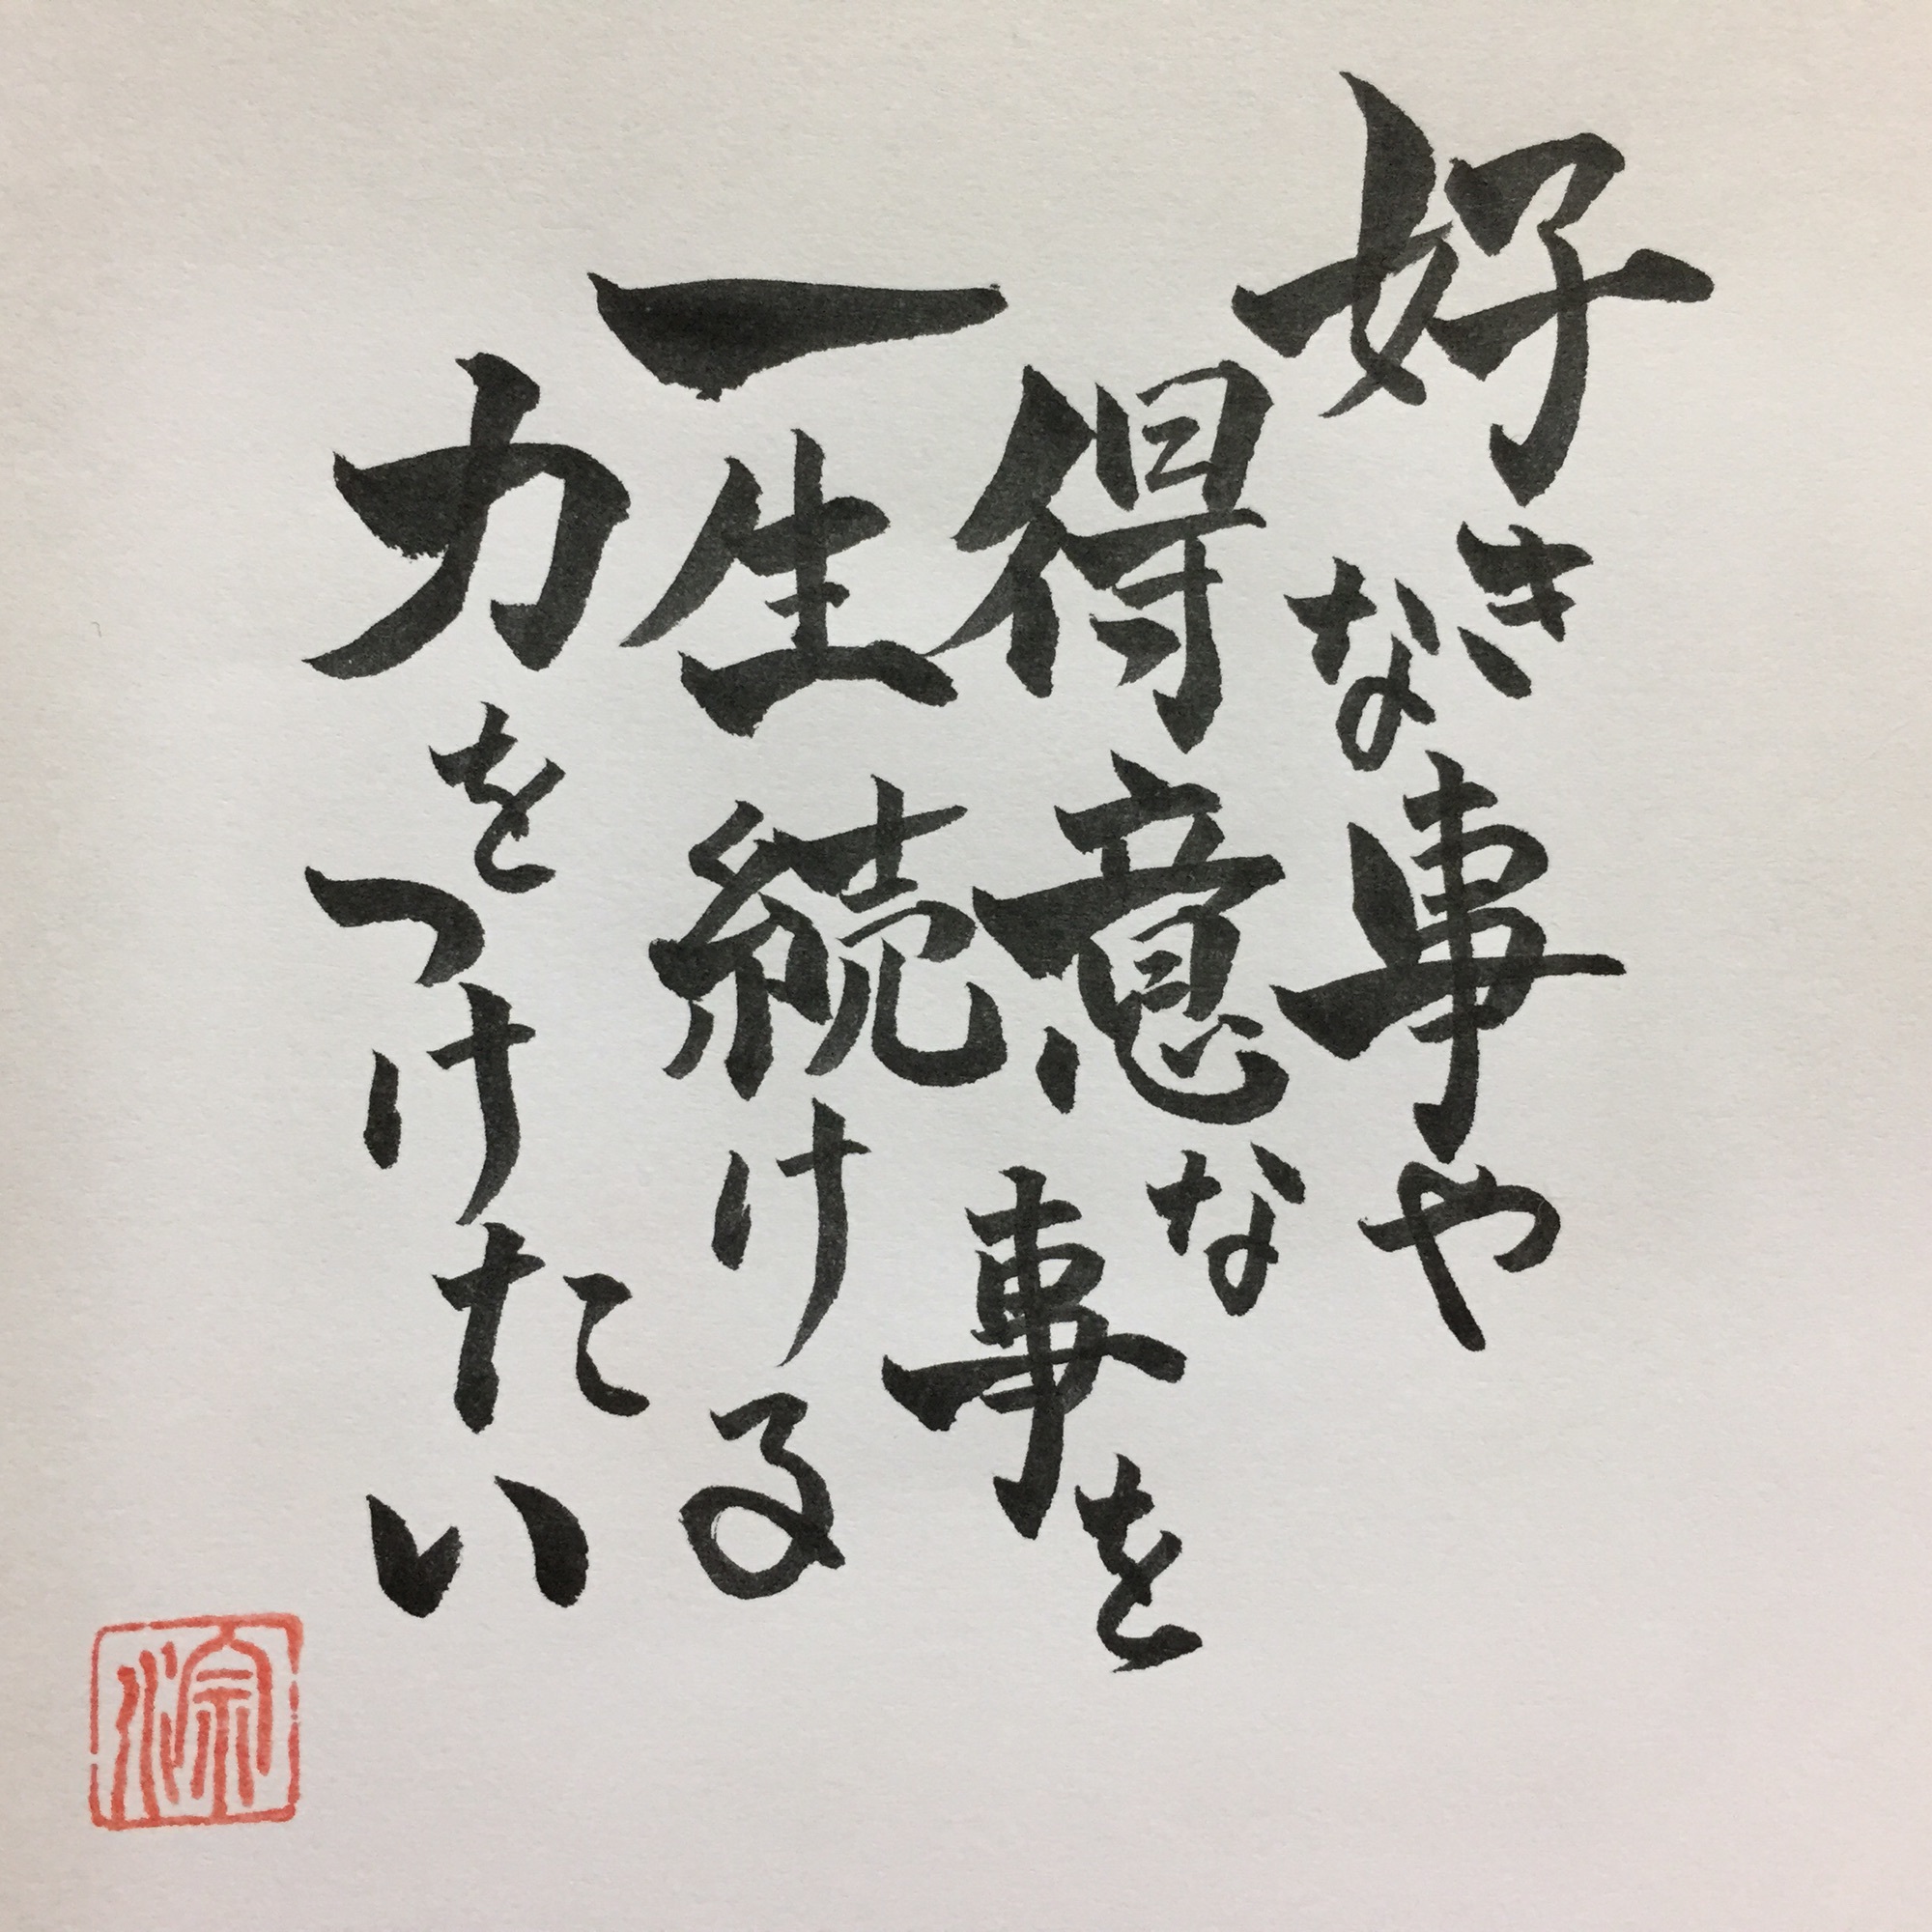 好きな事や
得意な事を
一生続ける
力をつけたい